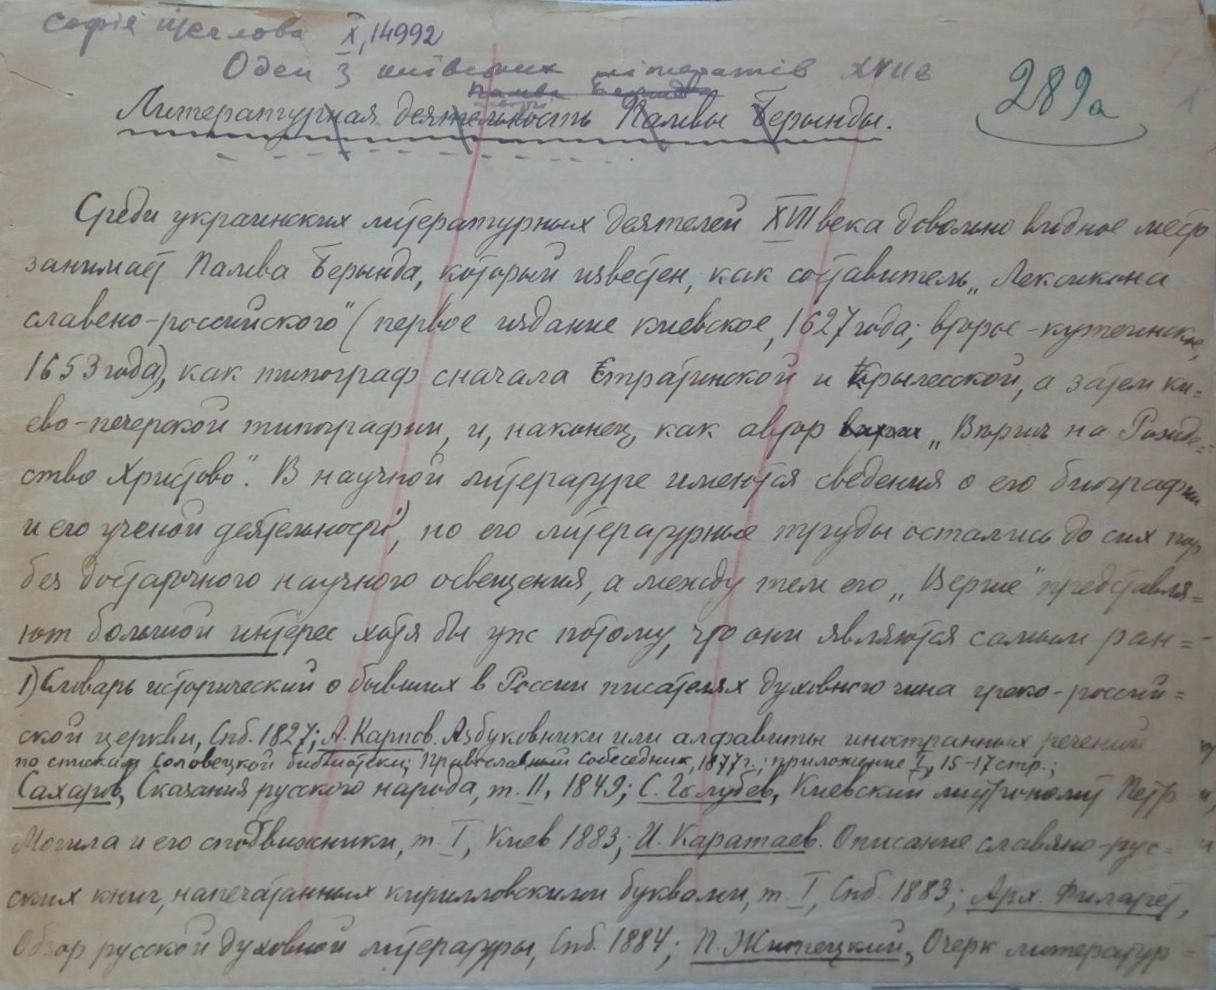 Софія Щеглова X, 14992
Оден з київських літератів XVII в
Памва Беринда
289а
Литературная деятельность Памвы Берынды.
Среди украинских литературных деятелей XVII века довольно видное место
занимает Памва Берында, который известен, как составитель „Лексикона
славено-российского" (первое издание киевское, 1627 года; второе - кутеинское,
1653 года), как типограф сначала Стратинской и Крылосской, а затем ки=
ево-печерской типографии, и, наконец, как автор „Вірши на Рожде=
ство Христово". В научной литературе имеются сведения о его биографии
и его ученой деятельности¹⁾, но его литературные труды остались до сих пор
без достаточного научного освещения, а между тем его „Верше" представля=
ют большой интерес хотя бы уже потому, что они являются самым ран=
1) Словарь исторический о бывших в России писателях духовного чина греко-россий=
ской церкви, Спб. 1827; А. Карпов. Азбуковники или алфавиты иностранных речений
по спискам Соловецкой библиотеки; Православный Собеседник, 1877 г.; приложение I, 15-17 стр.;
Сахаров, Сказания русского народа, т. II, 1849; С. Голубев, Киевский митрополит Петр
Могила и его сподвижники, т. I, Киев 1883; И. Каратаев. Описание славяно-рус=
ских книг, напечатанных кирилловскими буквами, т. I, Спб. 1883; Арх. Филарет,
Обзор русской духовной литературы, Спб. 1884; П. Житецкий, Очерк литератур-